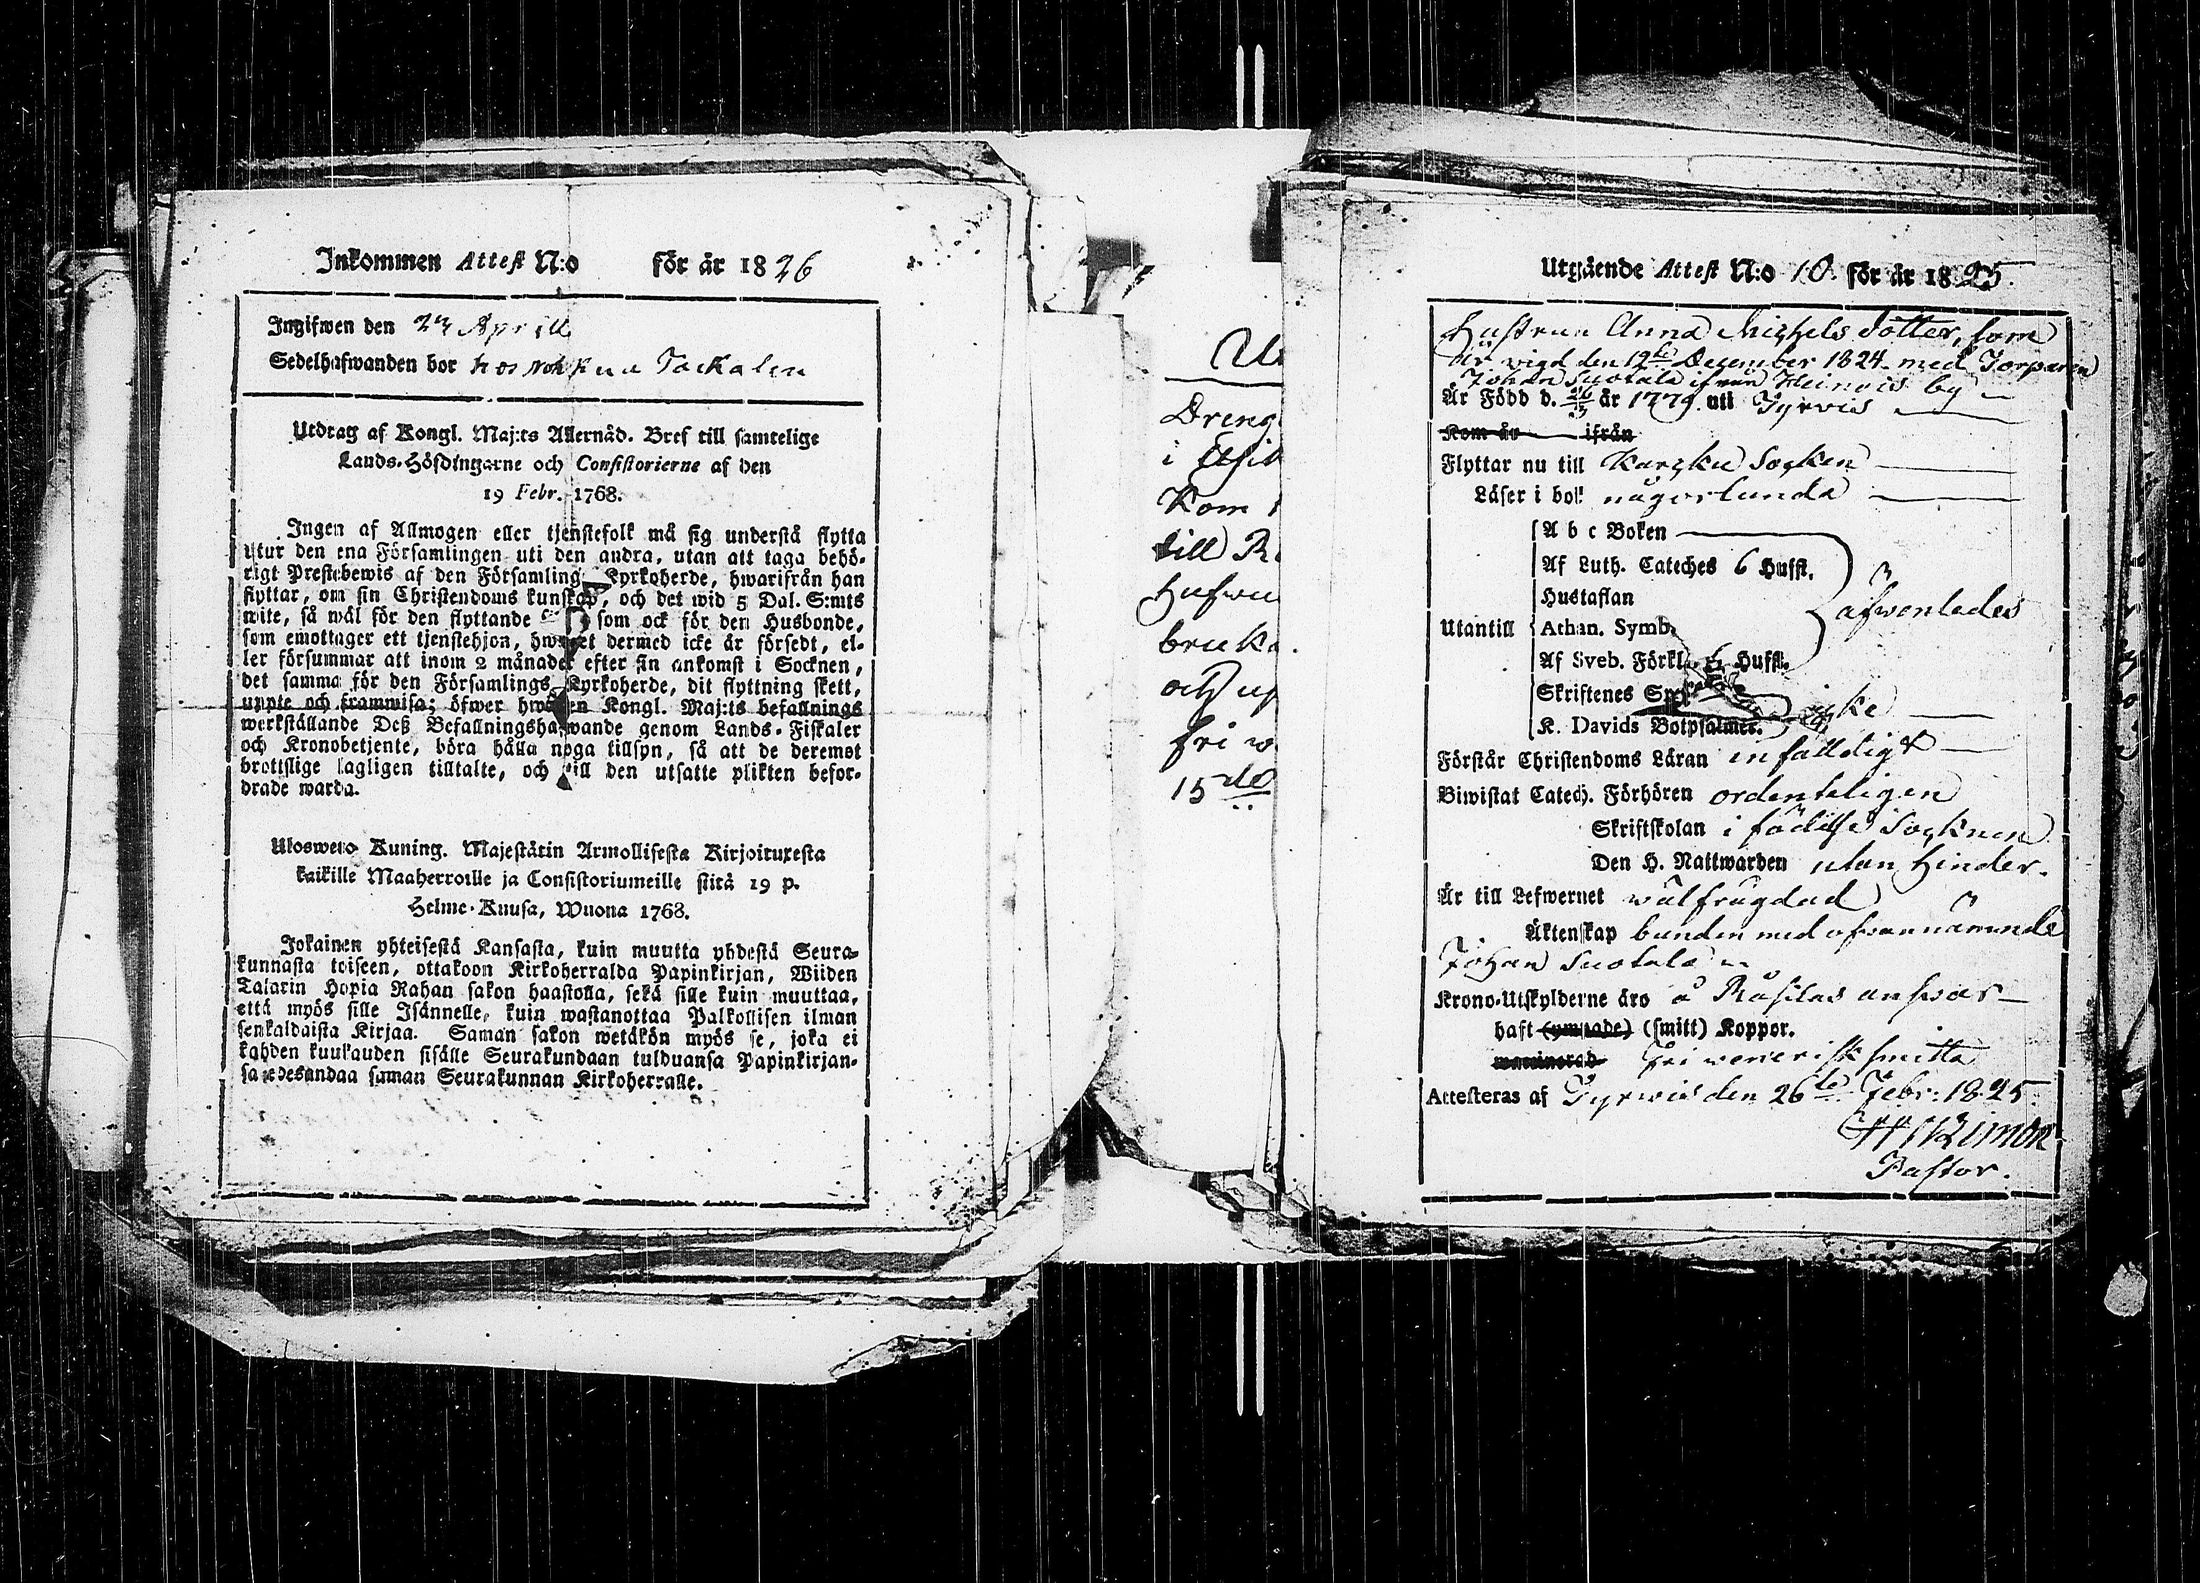 Inkommen Attest N:o för år 1826
Ingifwen den 24 Aprill
Sedelhafwanden bor hos
Utdrag af Kongl. Maj:ts Allernåd. Bref till samtelige
Lands-Höfdingarne och Consistorierne af den
19 Febr. 1768.
Ingen af Allmogen eller tjenstefolk må sig understå flytta
utur den ena Församlingen uti den andra, utan att taga behö-
rigt Prestebewis af den Församlings Kyrkoherde, hwarifrån han
flyttar, om sin Christendoms kunskap, och det wid 5 Dal. S:mts
wite, så wäl för den flyttande som ock för den Husbonde,
som emottager ett tjenstehjon, hwilket dermed icke är försedt, el-
ler försummar att inom 2 månader efter sin ankomst i Socknen,
det samma för den Församlings Kyrkoherde, dit flyttning skett,
uppte och framwisa; öfwer hwilken Kongl. Maj:ts befallnings
werkställande Deß Befallningshafwande genom Lands-Fiskaler
och Kronobetjente, böra hålla noga tillsyn, så att de deremot
brottslige lagligen tilltalte, och till den utsatte plikten befor-
drade warda.
Uloswetto Kuning. Majestätin Armollisesta Kirjoituxesta
kaikille Maaherroille ja Consistoriumeille siitä 19 p.
Helme-Kuusa, Wuona 1768.
Jokainen yhteisestä Kansasta, kuin muutta yhdestä Seura-
kunnasta toiseen, ottakoon Kirkoherralda Papinkirjan, Wiiden
Talarin Hopia Rahan sakon haastolla, sekä sille kuin muuttaa,
että myös sille Isännelle, kuin wastanottaa Palkollisen ilman
senkaldaista Kirjaa. Saman sakon wetäkön myös se, joka ei
kahden kuukauden sisälle Seurakundaan tulduansa Papinkirjan-
sa edesandaa saman Seurakunnan Kirkoherralle.
Dreng
i
Kom
till
och
fri
15
Utgående Attest N:o 10. för år 1825.
Hustrun Anna Michels dotter, som
är wigd den 12te December 1824. med Torparen
Johan Suotala ifrån Heinois by
Är Född d. 26/3 år 1779. uti Tyrvis
Kom år ifrån
Flyttar nu till Karzku Socken
Läser i bok någorlunda
A b c Boken
Af Luth. Cateches 6 Hufst.
Hustaflan
Utantill Athan. Symb. äfwenledes
Af Sveb. Förkl. 6 Hufst.
Skriftenes
K. Davids Botpsalmer. icke
Förstår Christendoms Läran enfalldigt
Biwistat Catech. Förhören ordenteligen
Skriftskolan i födelse Socknen
Den H. Nattwarden utan hinder.
Är till Lefwernet wälfrägdad
Äktenskap bunden med ofwannämnde
Johan Suotala
Krono-Utskylderne äro å Rusilas answar
haft (ympade) (smitt) Koppor.
waccinerad Fri wenerisk smitta
Attesteras af Tyrwis den 26te Febr: 1825.
Pastor.